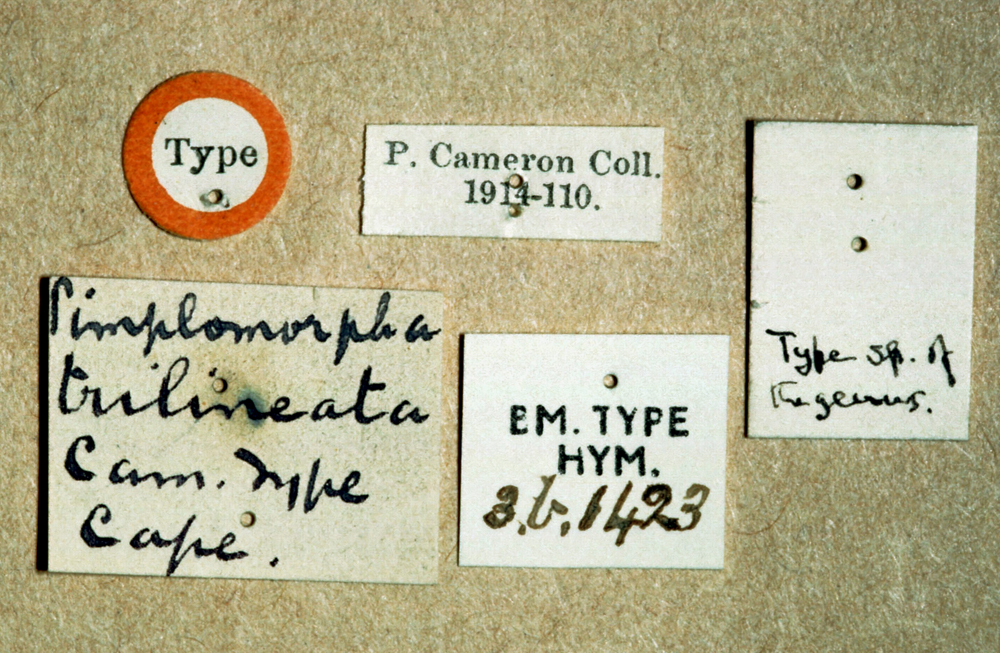 Type
P. Cameron Coll.
1914-110.
Pimplomorpha
trilineata
Cam. Type
Cape.
BM. TYPE
HYM.
3.b.1423
Type sp. of